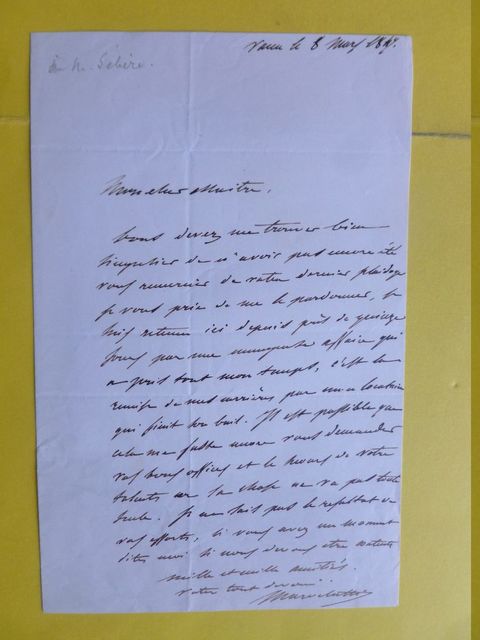 le 8 Mars
à M.
Mon cher Maitre,
Vous devez me trouver bien
singulier de n'avoir pas encore été
vous remercier de votre dernier plaidoyer
je vous prie de me le pardonner, je
suis retenu ici depuis près de quinze
jours par une affaire qui
a pris tout mon temps, c'est la
remise de mes par un locataire
qui finit son bail. Il est possible que
cela me fasse encore vous demander
vos bons offices et le secours de votre
talent, car la chose ne va pas toute
seule. Je ne sais pas le resultat de
vos efforts, si vous avez un moment
dites moi si nous devons etre contents
mille et mille amitiés.
votre tout dévoué